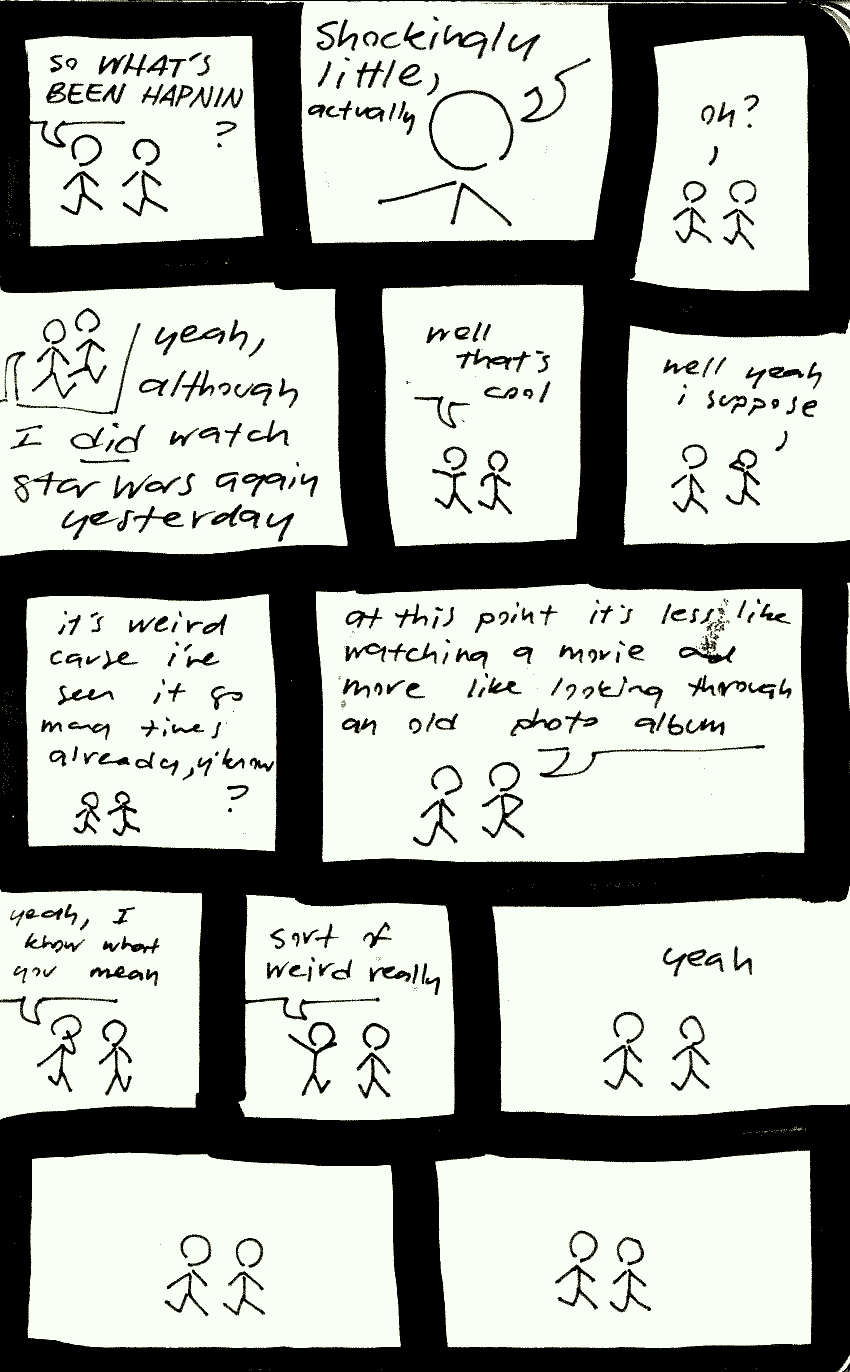 so WHAT'S
BEEN HAPNIN
?
Shockingly
little,
actually
oh?
yeah,
although
I did watch
star wars again
yesterday
well
that's
cool
well yeah
i suppose
it's weird
cause i've
seen it so
many times
already, y'know
?
at this point it's less like
watching a movie and
more like looking through
an old photo album
yeah, I
know what
you mean
sort of
weird really
yeah